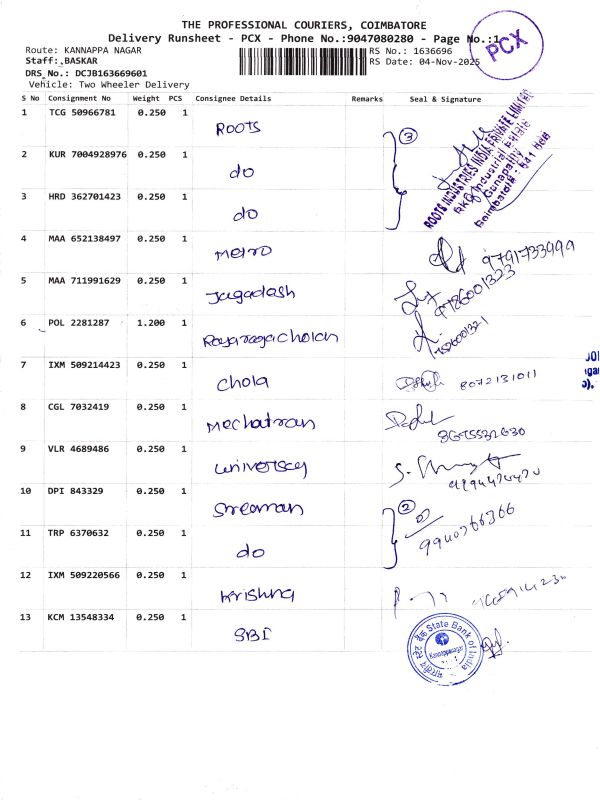 THE PROFESSIONAL COURIERS, COIMBATORE
Delivery Runsheet - PCX - Phone No.:9047080280 - Page No.:1
PCX
Route: KANNAPPA NAGAR
RS No.: 1636696
Staff: BASKAR
RS Date: 04-Nov-2025
DRS No.: DCJB163669601
Vehicle: Two Wheeler Delivery
S No Consignment No Weight PCS Consignee Details Remarks Seal & Signature
1 TCG 50966781 0.250 1 ROOTS
3
ROOTS INDUSTRIES INDIA PRIVATE LIMITED
RKG Industrial Estate
Ganapathy
Coimbatore - 641 006
2 KUR 7004928976 0.250 1 do
3 HRD 362701423 0.250 1 do
4 MAA 652138497 0.250 1 metro 9791733999
5 MAA 711991629 0.250 1 Jagadash 9786001323
6 POL 2281287 1.200 1 Rajarajacholan
7 IXM 509214423 0.250 1 chola 8072131011
8 CGL 7032419 0.250 1 mechatran
9 VLR 4689486 0.250 1 university
10 DPI 843329 0.250 1 Sreeman 2
9940766366
11 TRP 6370632 0.250 1 do
12 IXM 509220566 0.250 1 Krishna
13 KCM 13548334 0.250 1 SBI
भारतीय स्टेट बैंक State Bank of India
Kannappanagar